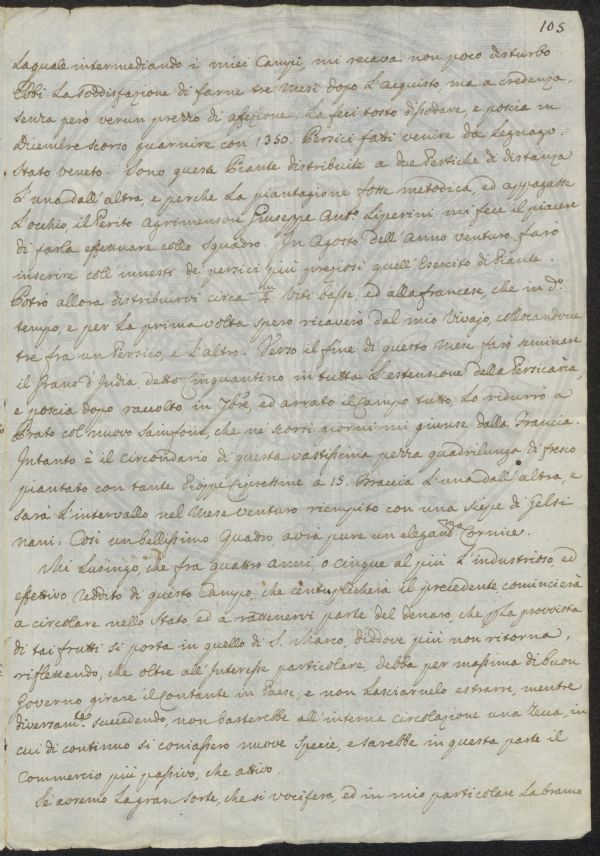 105
La quale intermediando i miei Campi, mi recava non poco disturbo.
Ebbi la Soddisfazione di farne tre mesi dopo l'acquisto, ma a credenza,
senza però verun prezzo di affezione. La feci tosto dissodare, e poscia in
Dicembre scorso guarnire con 1350. Persici fatti venire da Legnago.
Stato veneto. Sono queste Piante distribuite a due Pertiche di distanza
l'una dall'altra, e perchè la piantagione fosse metodica, ed appagasse
l'occhio, il Perito Agrimensore Giuseppe Ant.o Liperini mi fece il piacere
di farla effettuare collo Squadro. In Agosto dell'Anno venturo farò
inserire coll'innesti de persici più preziosi quell'Esercito di Piante.
Potrò allora distribuirvi circa 4.m Viti basse, ed alla francese, che in d.o
tempo, e per la prima volta spero ricaverò dal mio Vivajo, collocandone
tre fra un Persico, e l'altro. Verso il fine di questo Mese farò seminare
il Grano d'India detto Cinquantino in tutta l'estensione della Persicaria,
e poscia dopo raccolto in 7bre, ed arrato il Campo tutto, lo ridurrò a
Prato col nuovo Sainfoin, che ne scorsi giorni mi giunse dalla Francia.
Intanto è il circondario di questa vastissima pezza quadrilunga di fresco
piantato con tante Pioppe Cipressine a 15. Braccia l'una dall'altra, e
sarà l'intervallo nel Mese venturo riempito con una Siepe di Gelsi
nani: Così un bellissimo Quadro avrà pure un elegant.ma Cornice.
Mi lusingo, che fra quattro anni, o cinque al più l'industrioso, ed
effettivo reddito di questo Campo, che centuplicherà il precedente, comincierà
a circolare nello Stato, ed a rattenervi parte del denaro, che per la provvista
di tai frutti si porta in quello di S. Marco, diddove più non ritorna,
riflettendo, che oltre all'Interesse particolare, debba per massima di buon
Governo girare il Contante in Paese, e non lasciarnelo estrarre, mentre
diversam.te succedendo, non basterebbe all'interna circolazione una Zecca, in
cui di continuo si coniassero nuove Specie, e sarebbe in questa parte il
Commercio più passivo, che attivo.
Se avremo la gran sorte, che si vocifera, ed in mio particolare la bramo